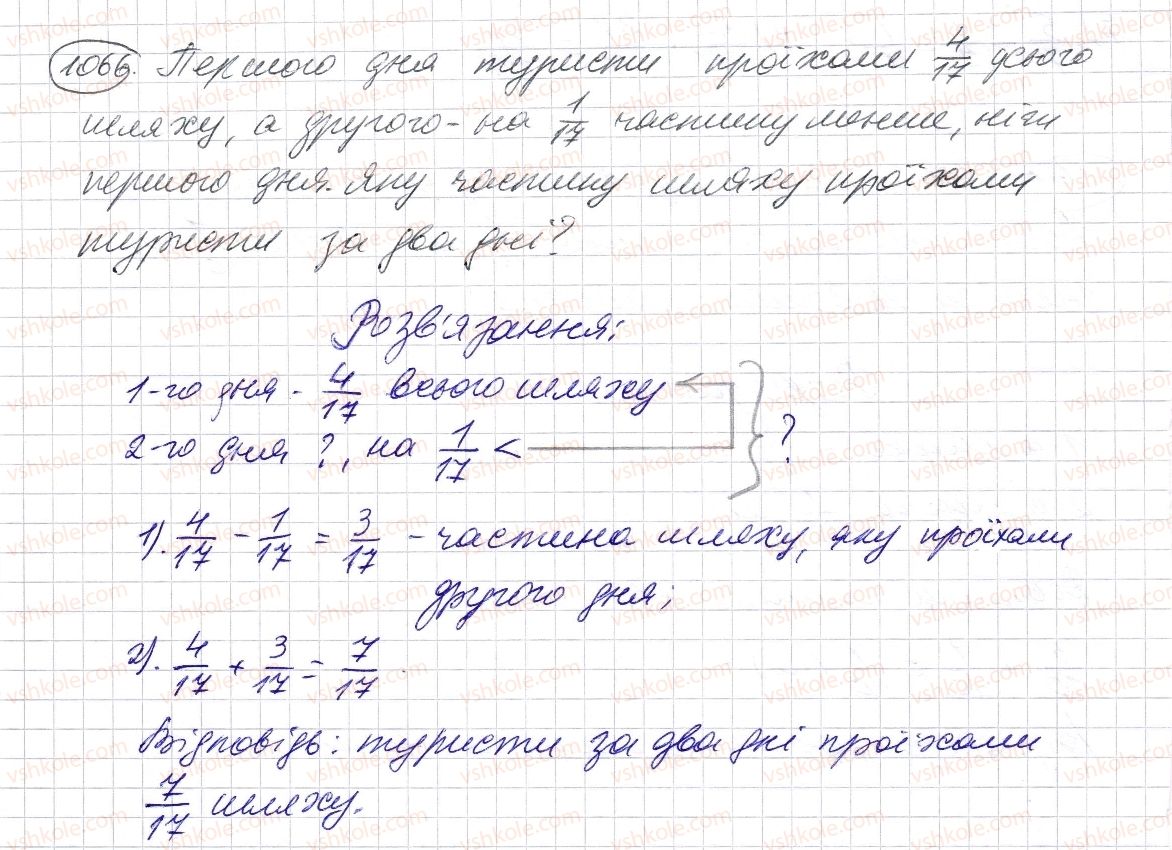 1066. Першого дня туристи проїхали 4/17 усього
шляху, а другого - на 1/17 частину менше, ніж
першого дня. Яку частину шляху проїхали
туристи за два дні?
Розв'язання:
1-го дня - 4/17 всього шляху
2-го дня ?, на 1/17 < ?
1). 4/17 - 1/17 = 3/17 - частина шляху, яку проїхали
другого дня;
2). 4/17 + 3/17 = 7/17
Відповідь: туристи за два дні проїхали
7/17 шляху.
vshkole.com